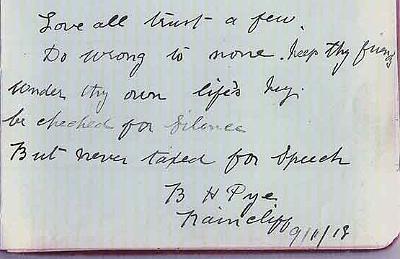 Love all trust a few.
Do wrong to none. Keep thy friend
Under thy own life's key.
be checked for Silence
But never taxed for Speech
B H Pye
Raincliff 9/1/18